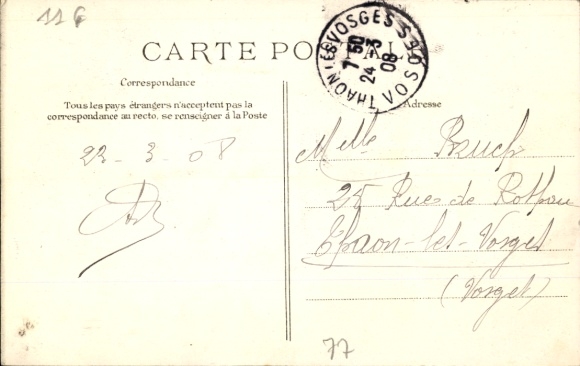 116
CARTE POSTALE
THAON LES VOSGES VOSGES
7 50
24 - 3
08
Correspondance
Adresse
Tous les pays étrangers n'acceptent pas la
correspondance au recto, se renseigner à la Poste
23 - 3 - 08
Melle Bruch
25 Rue de
Thaon-les-Vosges
(Vosges)
77